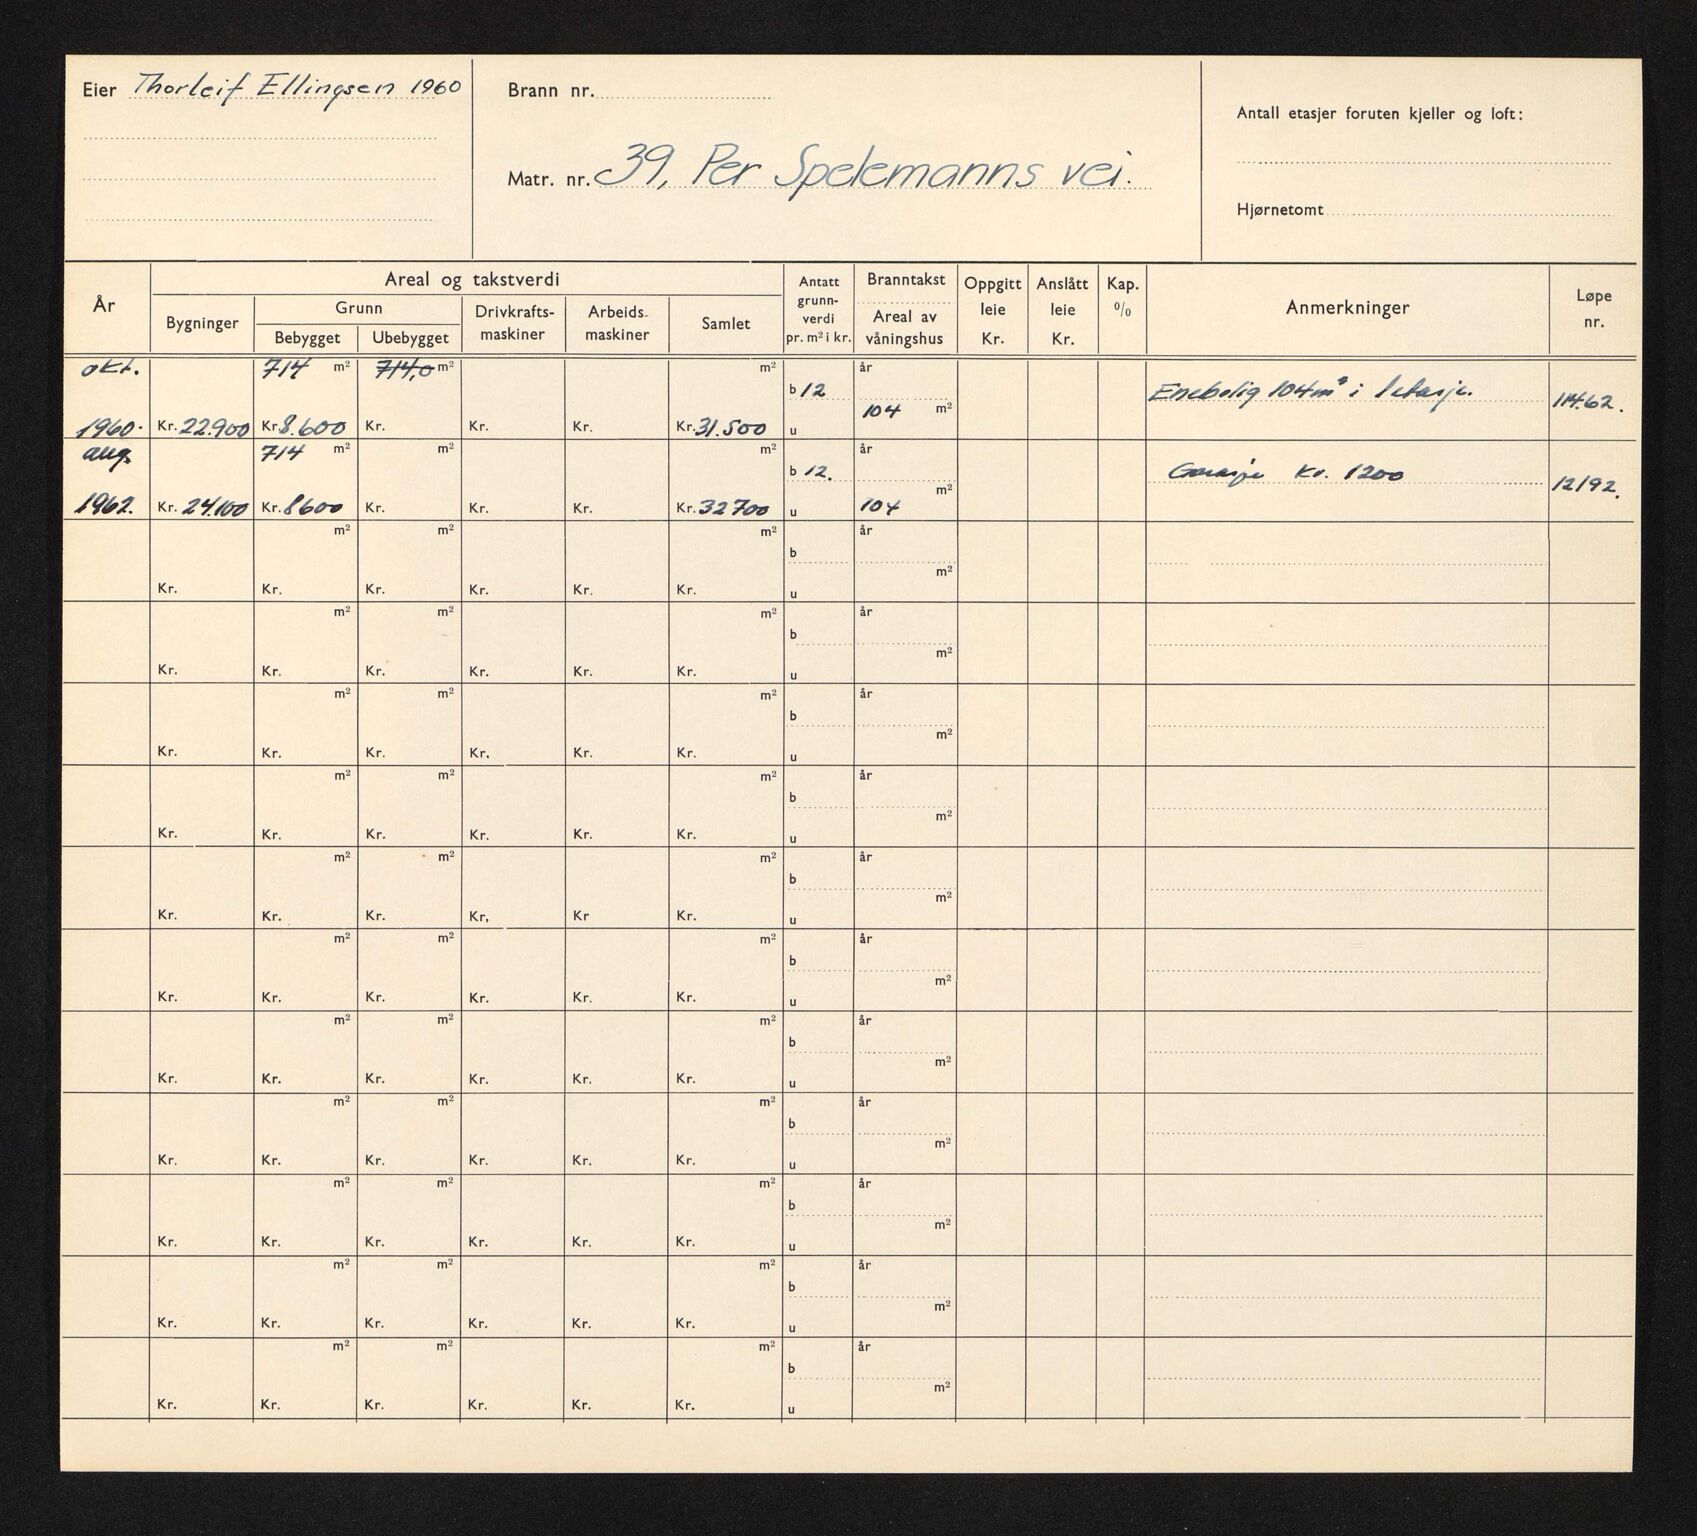 Eier Thorleif Ellingsen 1960
Brann nr.
Matr. nr. 39, Per Spelemanns vei.
Antall etasjer foruten kjeller og loft:
Hjørnetomt
År
Areal og takstverdi
Bygninger
Grunn
Bebygget
Ubebygget
Drivkrafts-
maskiner
Arbeids-
maskiner
Samlet
Antatt
grunn-
verdi
pr. m² i kr.
Branntakst
Areal av
våningshus
Oppgitt
leie
Kr.
Anslått
leie
Kr.
Kap.
%
Anmerkninger
Løpe
nr.
okt. 714 m² 714,0 m² m² år
b 12 Enebolig 104 m² i 1 etasje.
104 m² 11462.
1960. Kr. 22.900 Kr. 8.600 Kr. Kr. Kr. Kr. 31.500 u
aug. 714 m² m² m² år
b 12. Garasje Kr. 1200
m² 12192.
1962. Kr. 24.100 Kr. 8600 Kr. Kr. Kr. Kr. 32700 u 104
m² m² m² år
b
m²
Kr. Kr. Kr. Kr. Kr. Kr. u
m² m² m² år
b
m²
Kr. Kr. Kr. Kr. Kr. Kr. u
m² m² m² år
b
m²
Kr. Kr. Kr. Kr. Kr. Kr. u
m² m² m² år
b
m²
Kr. Kr. Kr. Kr. Kr. Kr. u
m² m² m² år
b
m²
Kr. Kr. Kr. Kr, Kr Kr. u
m² m² m² år
b
m²
Kr. Kr. Kr. Kr. Kr. Kr. u
m² m² m² år
b
m²
Kr. Kr. Kr. Kr. Kr. Kr. u
m² m² m² år
b
m²
Kr. Kr. Kr. Kr. Kr. Kr. u
m² m² m² år
b
m²
Kr. Kr. Kr. Kr. Kr. Kr. u
m² m² m² år
b
m²
Kr. Kr. Kr. Kr. Kr. Kr. u
m² m² m² år
b
m²
Kr. Kr. Kr. Kr. Kr. Kr. u